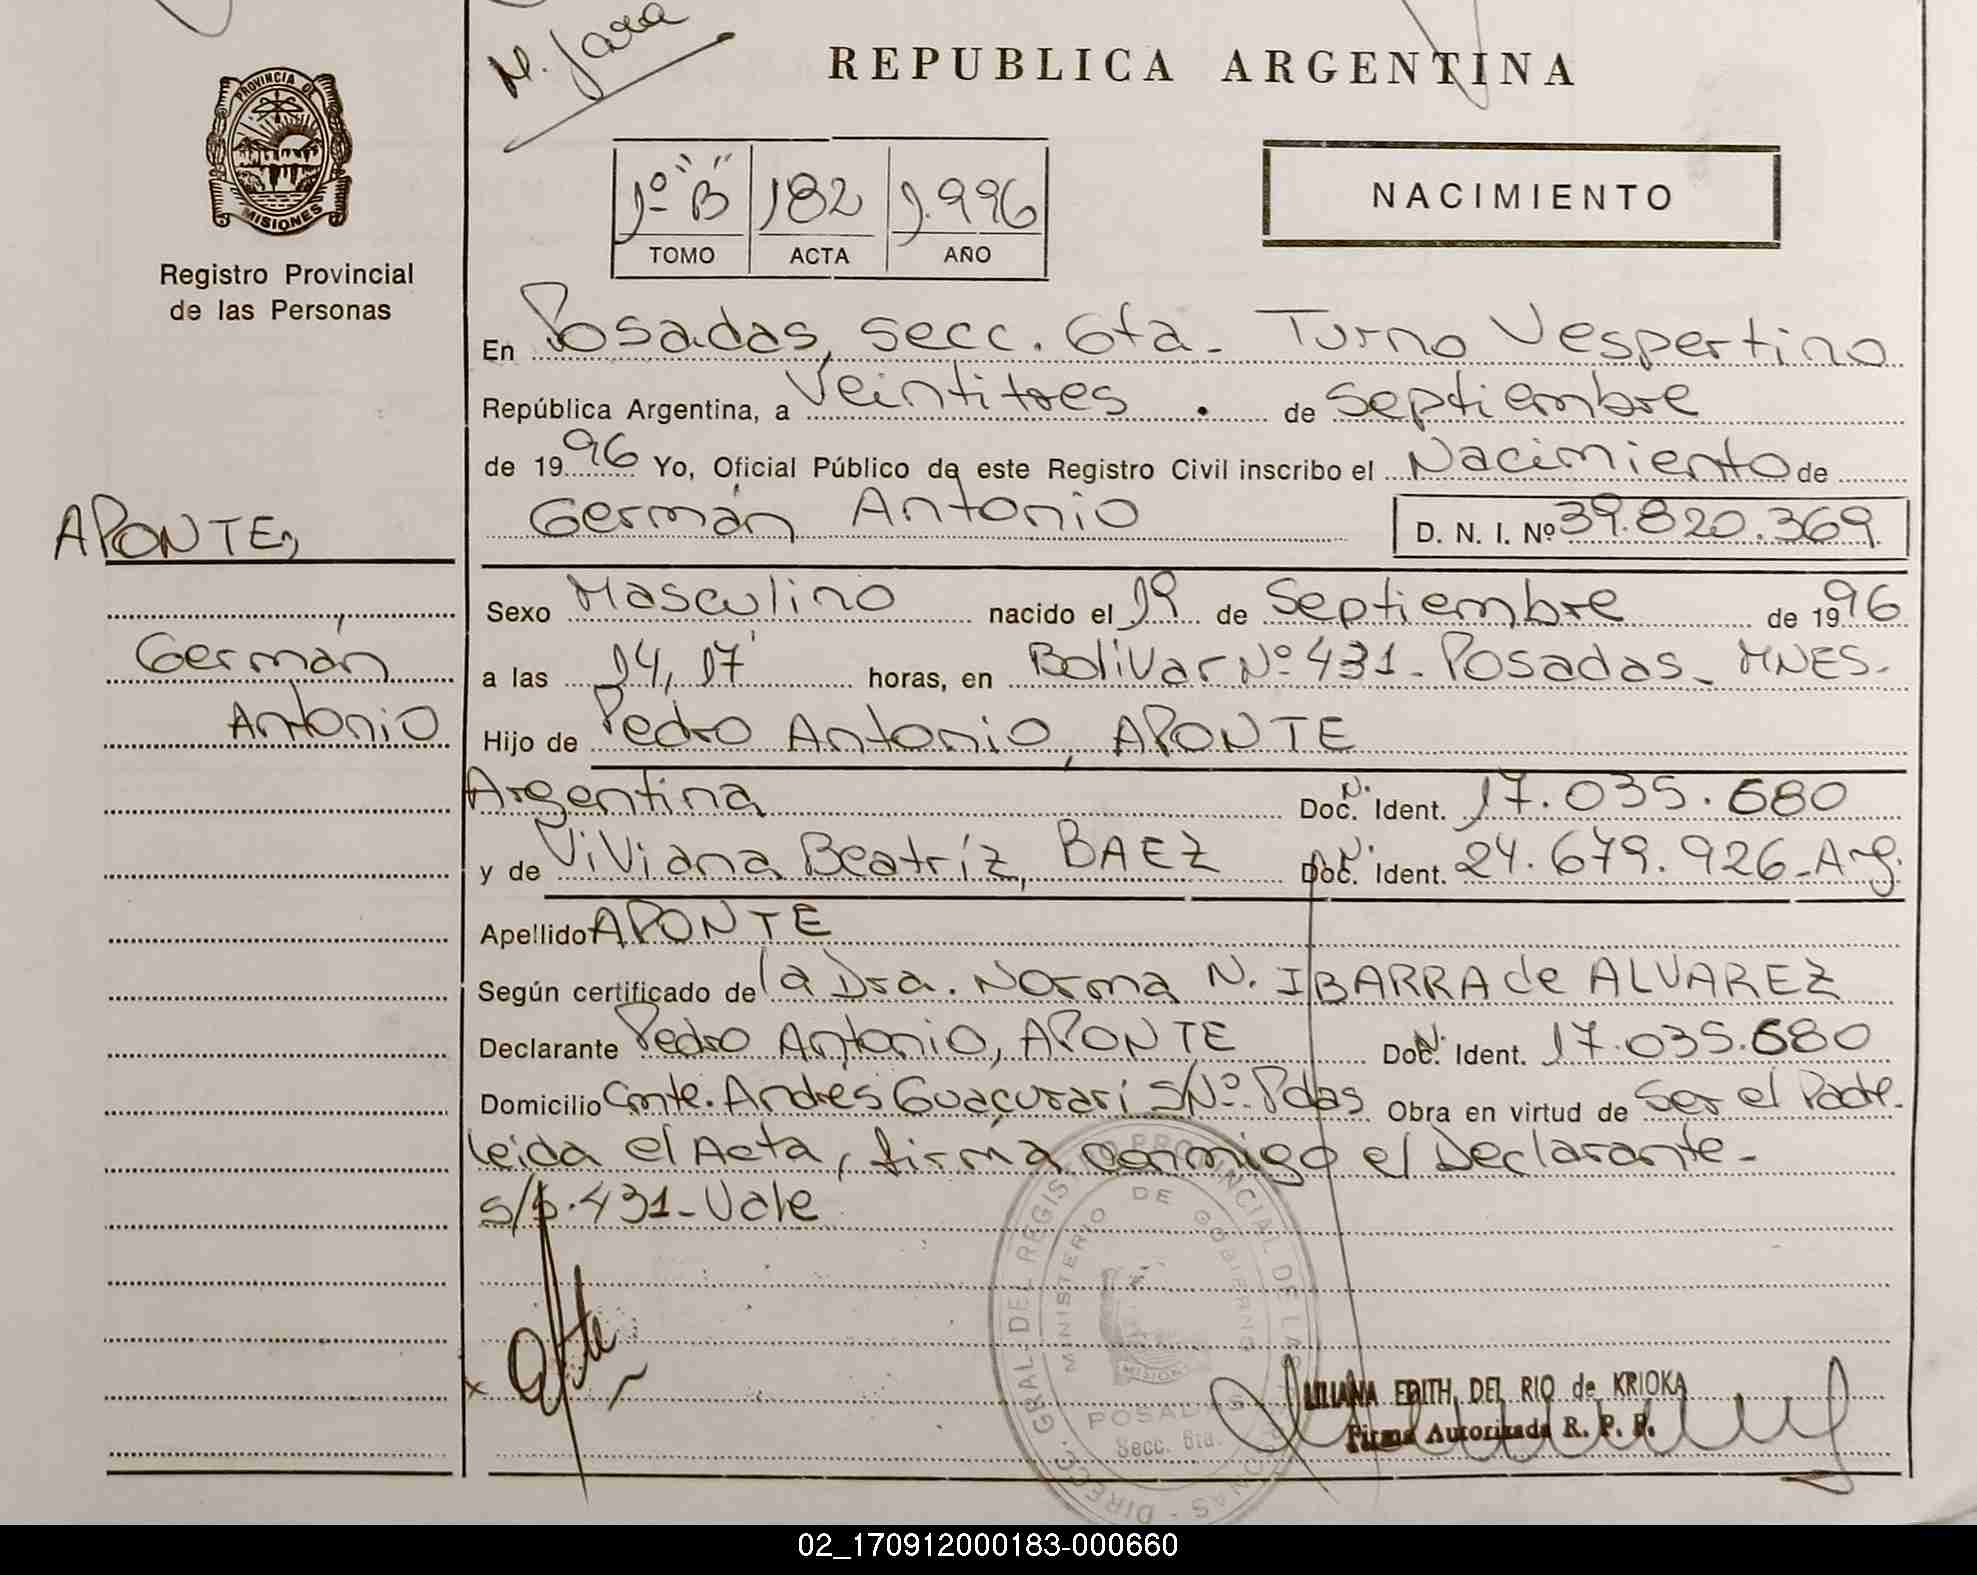 N. Jara
REPUBLICA ARGENTINA
PROVINCIA DE
MISIONES
Registro Provincial
de las Personas
1º "B" 182 1.996
TOMO ACTA AÑO
NACIMIENTO
En Posadas, secc. 6ta- Turno Vespertino
República Argentina, a Veintitres . de Septiembre
de 1996 Yo, Oficial Público de este Registro Civil inscribo el Nacimiento de
Germán Antonio D. N. I. Nº 39.820.369
APONTE,
Germán
Antonio
Sexo Masculino nacido el 19 de Septiembre de 1996
a las 14,17' horas, en Bolivar Nº 431- Posadas- MNES-
Hijo de Pedro Antonio, APONTE
Argentina Doc. N. Ident. 17.035.680
y de Viviana Beatríz, BAEZ Doc. N. Ident. 24.679.926-Arg.
Apellido APONTE
Según certificado de la Dra. Norma N. IBARRA de ALVAREZ
Declarante Pedro Antonio, APONTE Doc. N. Ident. 17.035.680
Domicilio Cmte. Andrés Guaçurarí S/Nº Pdas Obra en virtud de Ser el Padre-
leida el Acta, firma conmigo el Declarante-
s/p. 431- Vale
DIREC. GRAL. DEL REGISTRO PROVINCIAL DE LAS PERSONAS
MINISTERIO DE GOBIERNO
MISIONES
POSADAS
Secc. 6ta.
LILIANA EDITH DEL RIO de KRIOKA
Firma Autorizada R. P. P.
02_170912000183-000660